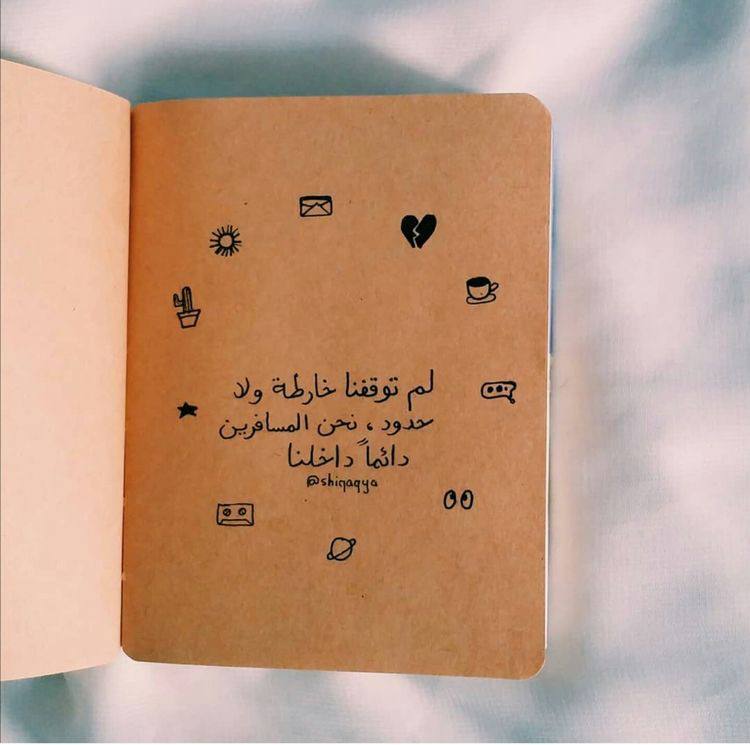 لم توقفنا خارطة ولا
حدود ، نحن المسافرين
دائماً داخلنا
@shiqaqya